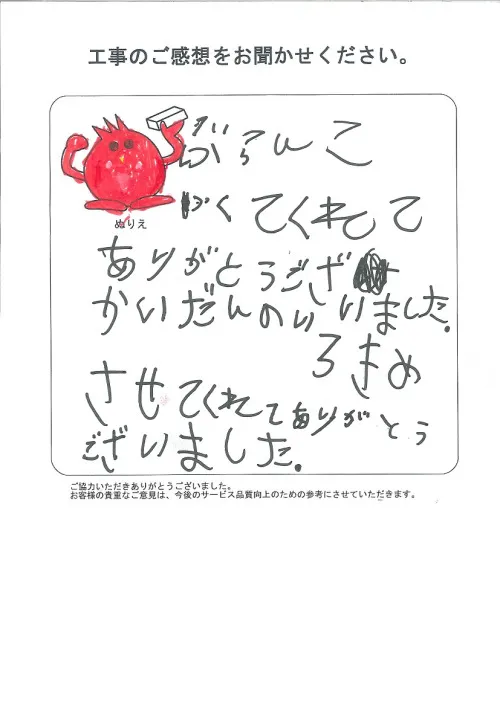 工事のご感想をお聞かせください。
ぶらんこ
つくてくれてて
ぬりえ
ありがとうござ
かいだんのいいました。
ろきめ
させてくれてありがとう
ございました。
ご協力いただきありがとうございました。
お客様の貴重なご意見は、今後のサービス品質向上のための参考にさせていただきます。